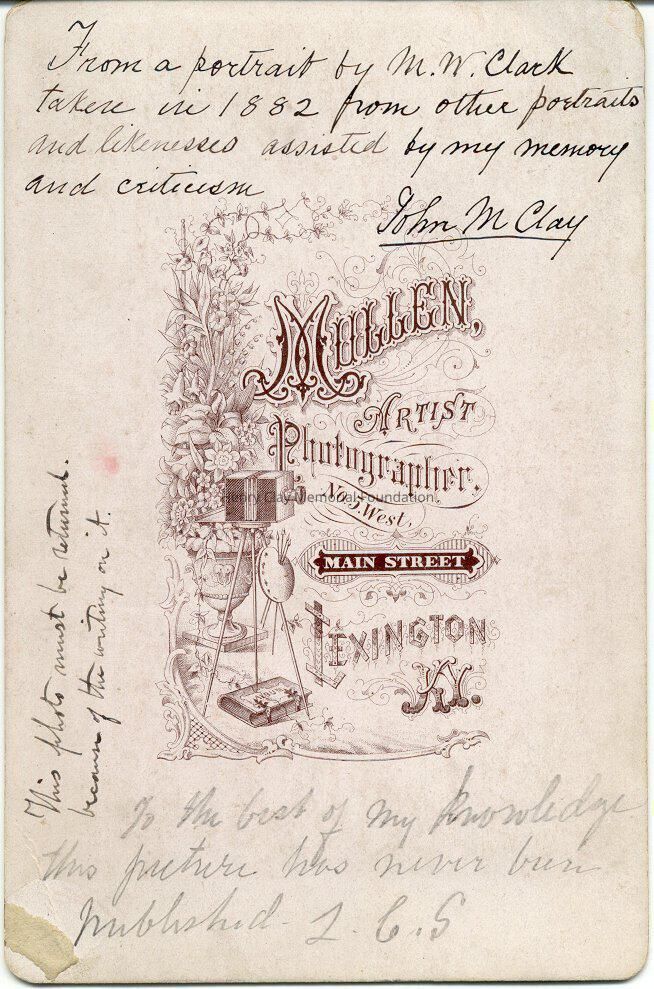 From a portrait by M. W. Clark
taken in 1882 from other portraits
and likenesses assisted by my memory
and criticism
John M Clay
MULLEN,
ARTIST
Photographer.
No. 5. West,
MAIN STREET
LEXINGTON
KY.
Henry Clay Memorial Foundation
This photo must be returned
because of the writing on it.
To the best of my knowledge
this picture has never been
published - L. C. S